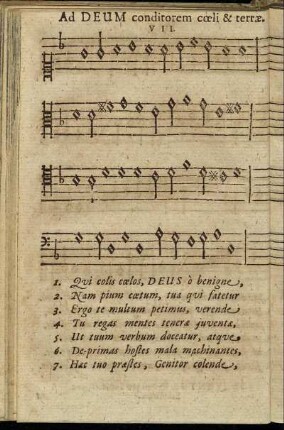 Ad DEUM conditorem cœli & terræ.
VII.
1. Qvi colis cœlos, DEUS ò benigne,
2. Nam pium cœtum, tua qvi fatetur
3. Ergo te multum petimus, verende
4. Tu regas mentes teneræ juventæ,
5. Ut tuum verbum doceatur, atqve
6. De-primas hostes mala machinantes,
7. Hæc tuo præstes, Genitor colende,